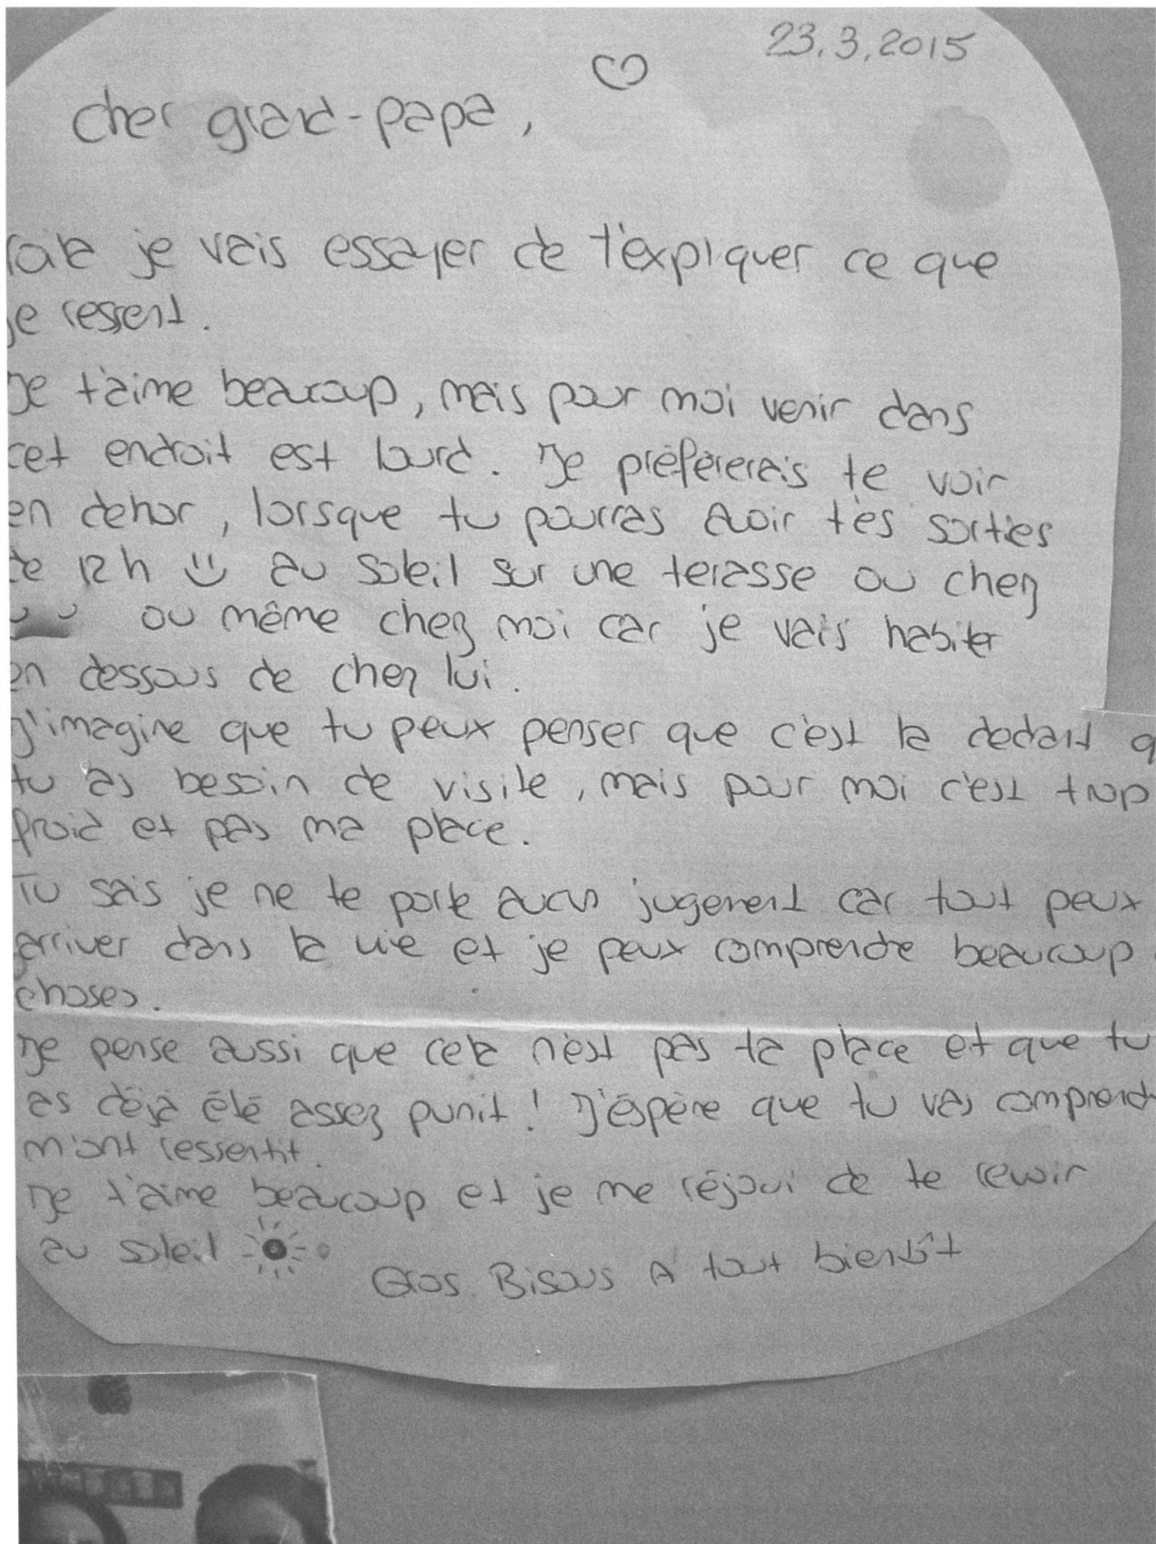 23.3.2015
Cher grand-papa,
voila je vais essayer de t'expliquer ce que
je ressent.
Je t'aime beaucoup, mais pour moi venir dans
cet endroit est lourd. Je préfèrerais te voir
en dehor, lorsque tu pourras avoir tes sorties
de 12h au soleil sur une terasse ou chez
ou même chez moi car je vais habiter
en dessous de chez lui.
J'imagine que tu peux penser que c'est la dedant q
tu as besoin de visite, mais pour moi c'est trop
froid et pas ma place.
Tu sais je ne te porte aucun jugement car tout peux
arriver dans la vie et je peux comprendre beaucoup
choses.
Je pense aussi que cela n'est pas ta place et que tu
as déjà été assez punit! J'éspère que tu vas comprend
m'ont ressentit.
Je t'aime beaucoup et je me réjoui de te revoir
au soleil
Gros Bisous A tout bientôt